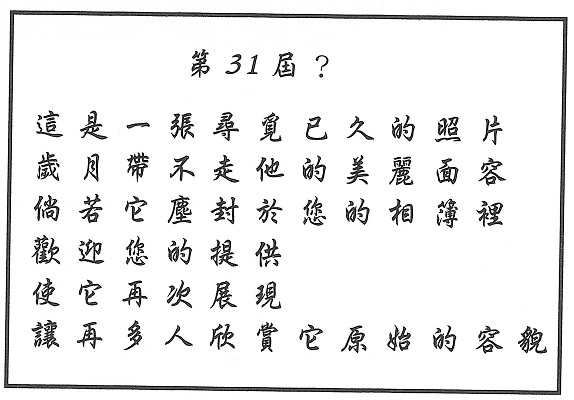 第 31 屆 ？
這是一張尋覓已久的照片
歲月帶不走他的美麗面容
倘若它塵封於您的相簿裡
歡迎您的提供
使它再次展現
讓再多人欣賞它原始的容貌